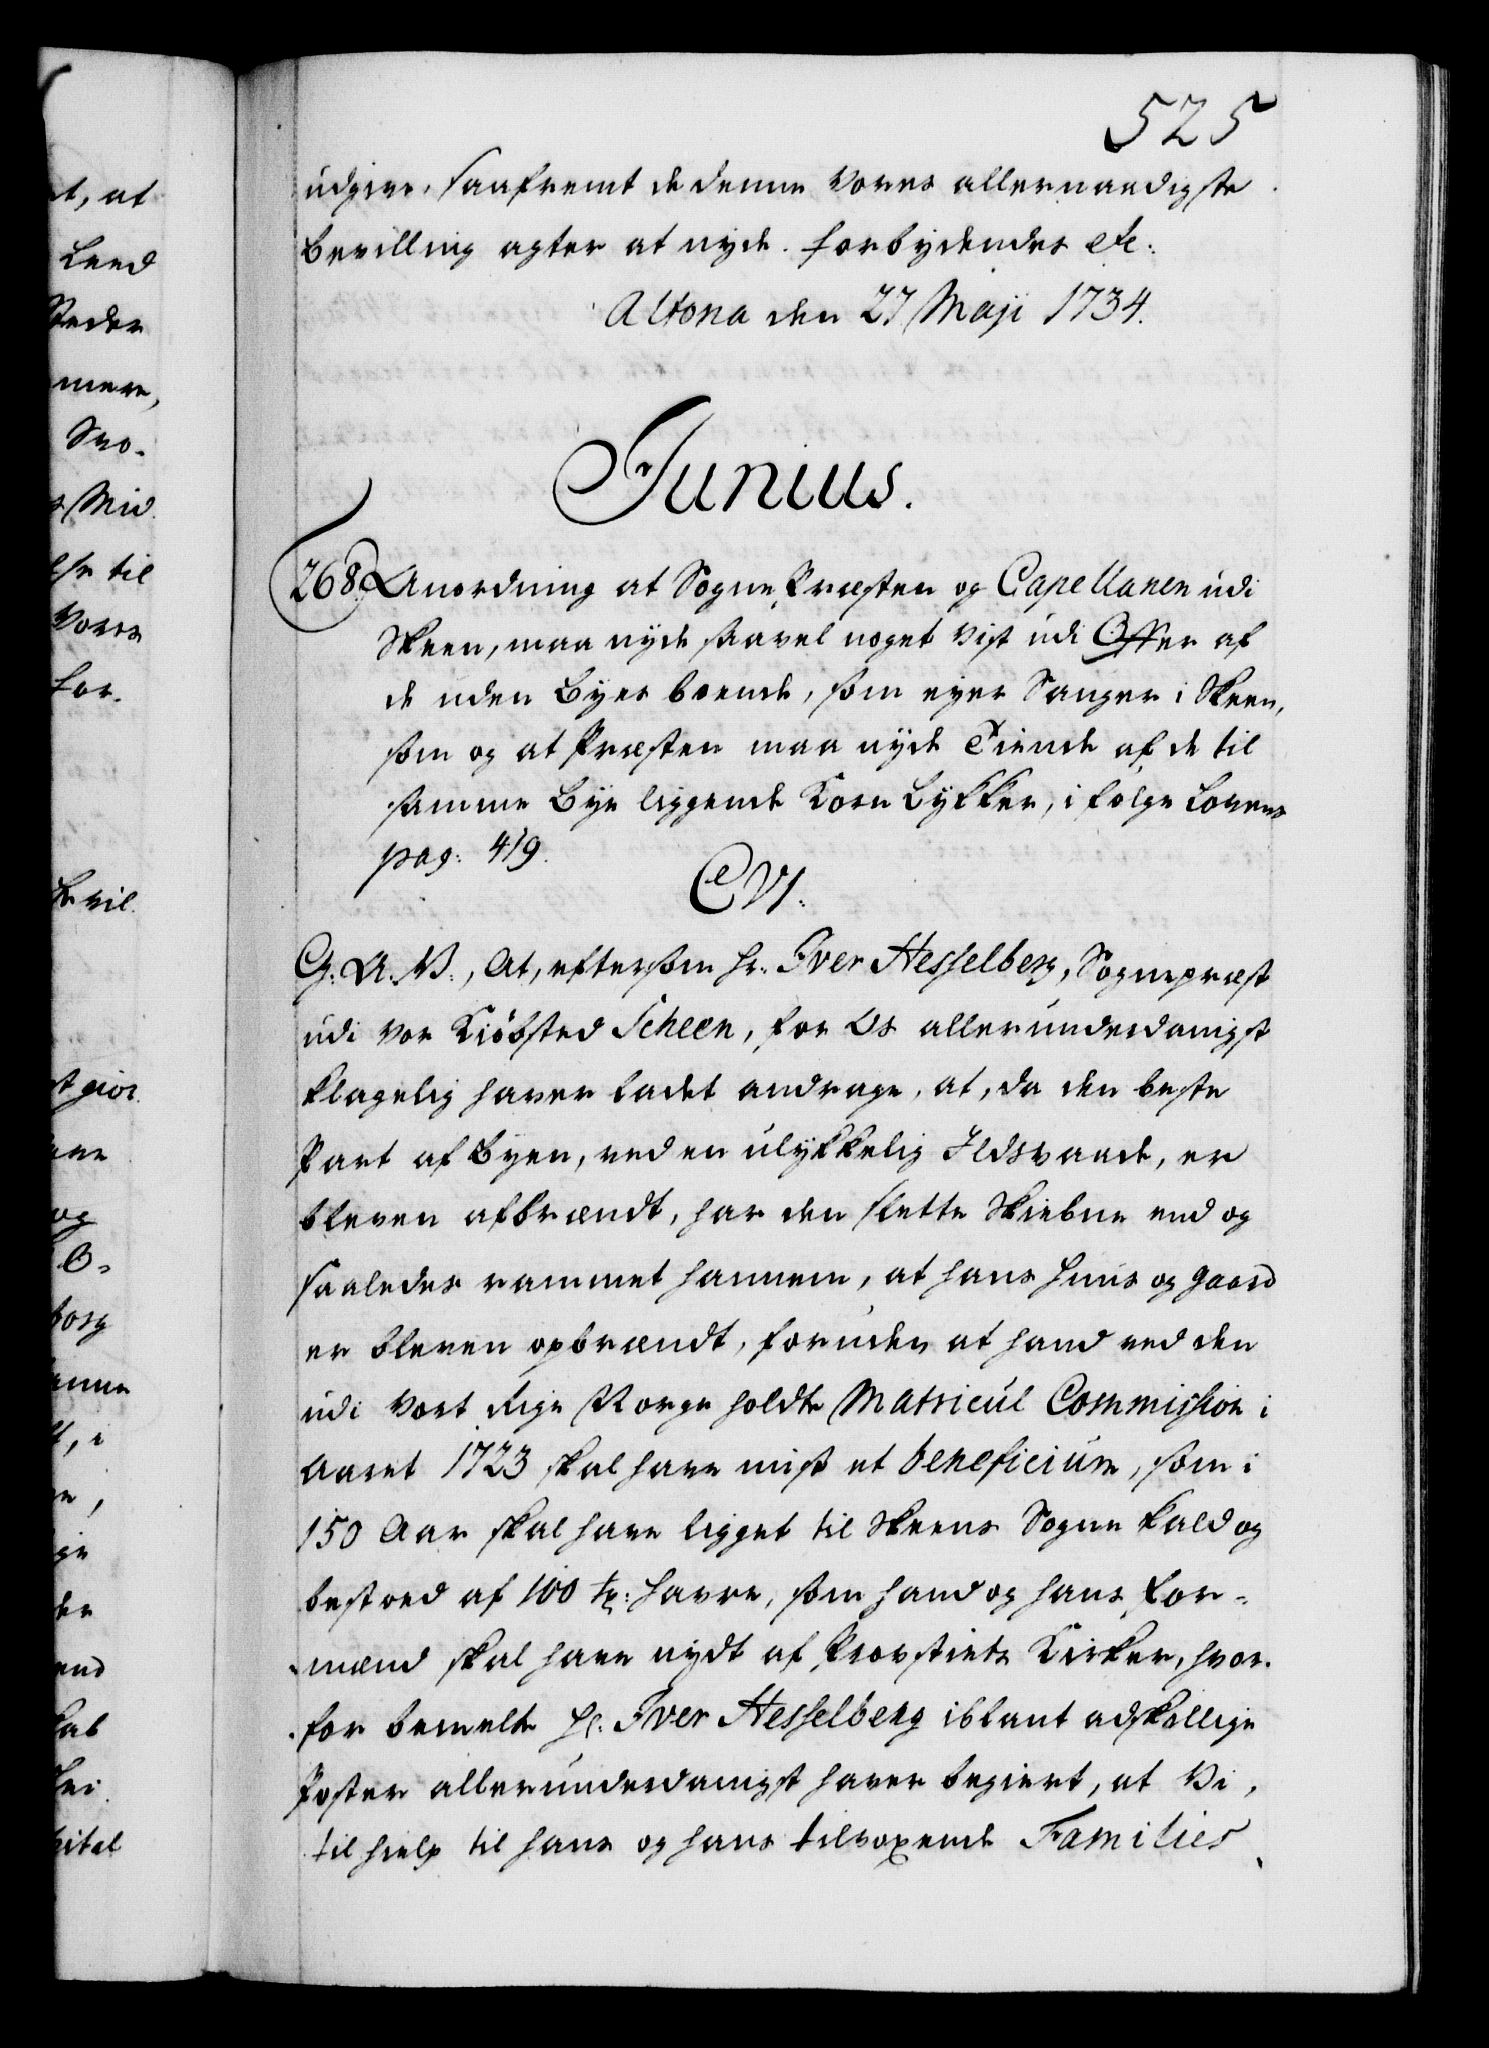 525
udgive, saafremt de denne Vores allernaadigste
Bevilling agter at nyde. Forbydendes etc:
Altona den 27 Maji 1734.
Junius.
268. Anordning at Sogne Præsten og Capellanen udi
Skeen, maa nyde saavel noget vist udi Offer af
de uden Byes boende, som eyer Sauger i Skeen,
som og at Præsten maa nyde Tiende af de til
samme Bye liggende Korn Lykker, i følge Lovens
pag: 419.
C VI.
G. A. V., At, eftersom Hr. Iver Hesselberg, Sognepræst
udi vor Kiøbsted Scheen, for Os allerunderdanigst
klagelig haver ladet andrage, at, da den beste
Part af Byen, ved en ulykkelig Ildsvaade, er
bleven afbrændt, har den slette Skiebne end og
saaledes rammet hannem, at hans Huus og gaard
er bleven opbrændt, foruden at hand ved den
udi Vort Rige Norge holdte Matricul Commission i
Aaret 1723 skal have mist et beneficium, som i
150 Aar skal have ligget til Skeens Sogne Kald og
bestoed af 100 tr: Havre, som hand og hans For-
mænd skal have nydt af Provstiets Kirker, hvor-
for bemelte Hr. Iver Hesselberg iblant adskellige
Poster allerunderdanigst haver begiert, at Vi,
til hielp til hans og hans tilvoxende Families
t, at
Leed
Steder
mere,
Sno-
Mid
til
Vores
For-
bevil
gior
og
O-
borg
enne
ige
der
end
kab
pital